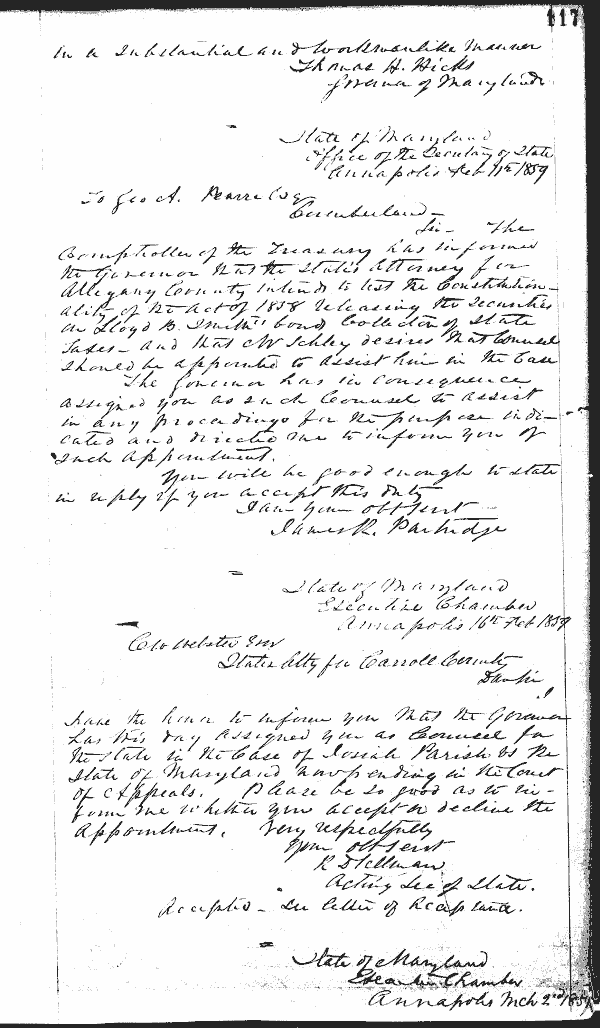 117
in a Substantial and Workmanlike Manner
Thomas H. Hicks
Governor of Maryland.
State of Maryland
Office of the Secretary of State
Annapolis Feb 11th 1859
To Geo A. Pearre Esq
Cumberland -
Sir - The
Comptroller of the Treasury has informed
the Governor that the State's Attorney for
Allegany County intends to test the Constitution-
ality of the Act of 1858 releasing the Securities
on Lloyd D. Smith's bond Collector of State
Taxes - and that Mr Schley desires that Counsel
should be appointed to assist him in the Case
The Governor has in consequence
assigned you as such Counsel to assist
in any proceedings for the purpose indi-
cated and directed me to inform you of
such appointment.
You will be good enough to state
in reply if you accept this duty
I am your obt Servt
James R. Partridge
State of Maryland
Executive Chamber
Annapolis 16th Feb 1859
Webster Esqr
States Atty for Carroll County
Dear Sir
I
have the honor to inform you that the Governor
has this day assigned you as Counsel for
the State in the Case of Josiah Parish vs the
State of Maryland now pending in the Court
of Appeals. Please be so good as to in-
form me whether you accept or decline the
appointment. Very respectfully
Your obt Servt
Acting Sec of State.
Accepted - See letter of Acceptance.
State of Maryland
Executive Chamber
Annapolis Mch 2nd 1859